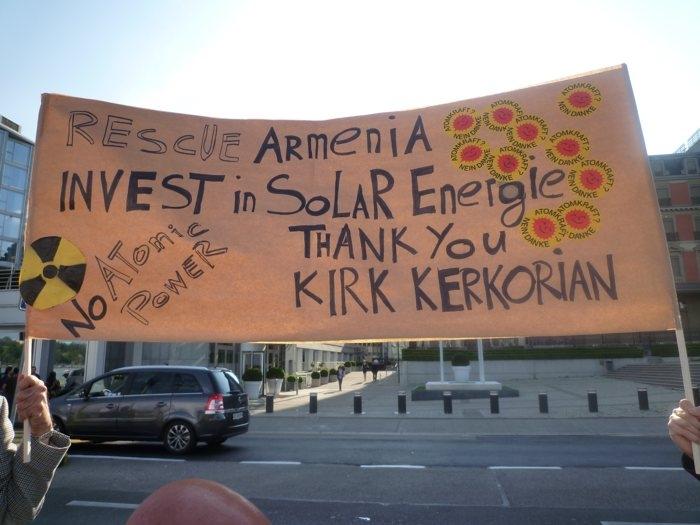 RESCUE ARMENIA
INVEST in SOLAR Energie
THANK YOU
KIRK KERKORIAN
NO ATomic
POWER
ATOMKRAFT?
NEIN DANKE
ATOMKRAFT?
NEIN DANKE
ATOMKRAFT?
NEIN DANKE
ATOMKRAFT?
NEIN DANKE
ATOMKRAFT?
NEIN DANKE
ATOMKRAFT?
NEIN DANKE
ATOMKRAFT?
NEIN DANKE
ATOMKRAFT?
NEIN DANKE
ATOMKRAFT?
NEIN DANKE
ATOMKRAFT?
NEIN DANKE